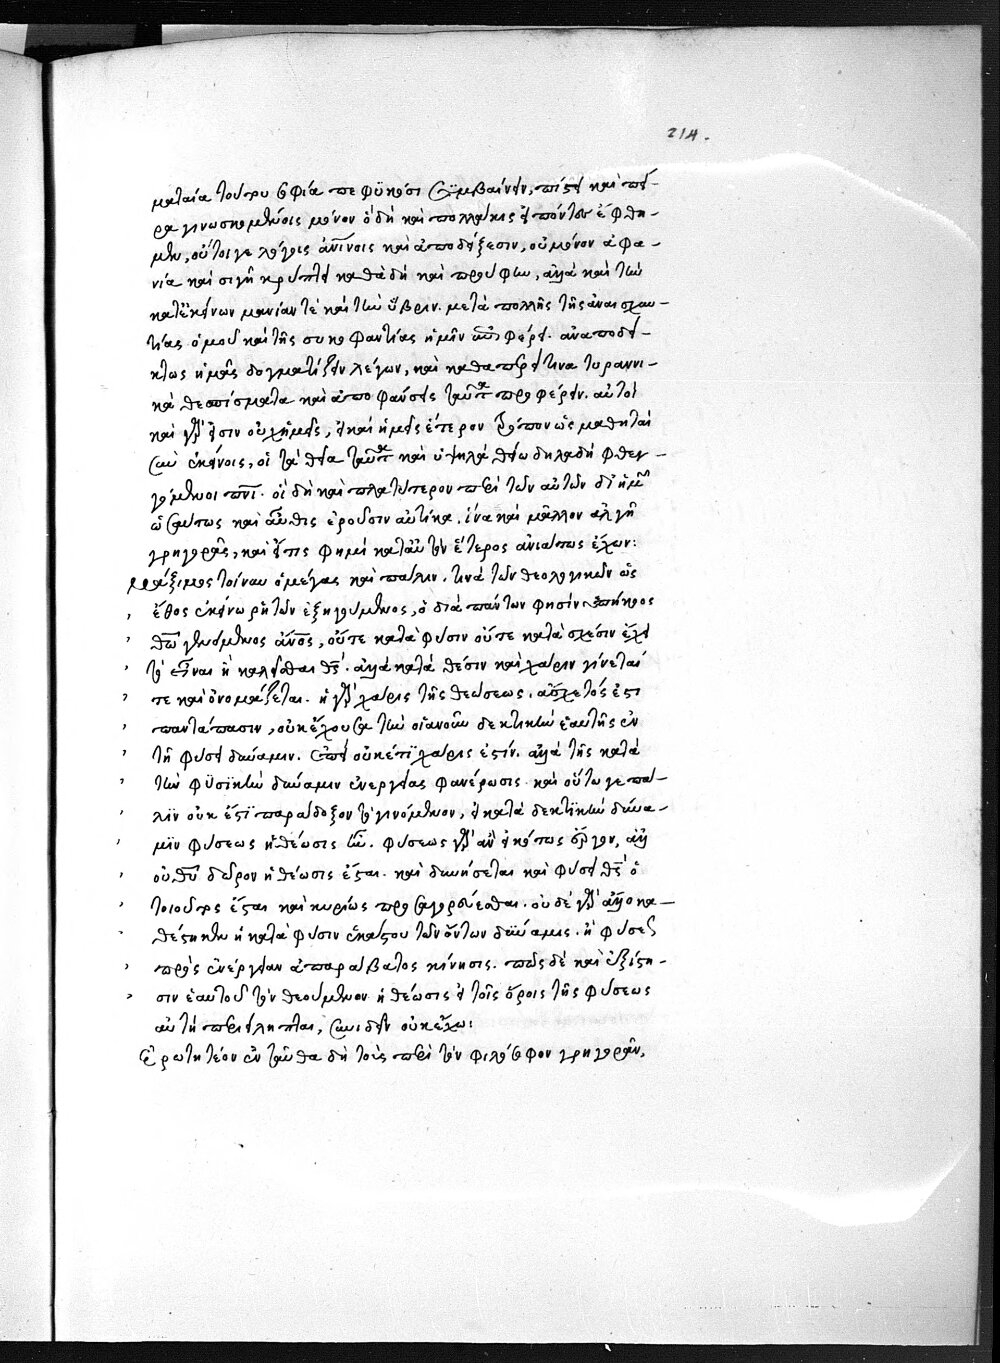 214.
ματαία τούτου σοφία πεφυκόσι συμβαίνειν, πίστει καὶ πεί-
ρα γινωσκομένοις μόνον ὁ δὴ καὶ πολλάκις εἰπόντες ἔφθη-
μεν, οὗτοι γε λόγοις ἀπίνοις καὶ ἀποδείξεσιν, οὐ μόνον ἀφα-
νία καὶ σιγῇ κρύπτει καθὰ δὴ καὶ προὔφην, ἀλλὰ καὶ τὴν
κατ' ἐκείνων μανίαν τὲ καὶ τὴν ὕβριν. μετὰ πολλῆς τῆς ἀναισχυν-
τίας ὁμοῦ καὶ τῆς συκοφαντίας ἡμῖν φέρει. ἀναποδεί-
κτως ἡμᾶς δογματίζειν λέγων, καὶ καθάπερ τινα τυραννι-
κὰ θεσπίσματα καὶ ἀποφάνσεις ταῦτα προφέρειν. αὐτοὶ
καὶ γάρ εἰσιν οὐχ ἡμεῖς, εἰ καὶ ἡμεῖς ἕτερον τρόπον ὡς μαθηταὶ
σὺν ἐκείνοις, οἱ τὰ θεῖα ταῦτα καὶ ὑψηλὰ θείῳ δηλαδὴ φθεγ-
γόμενοι πνι. οἱ δὴ καὶ πλατύτερον περὶ τῶν αὐτῶν δι' ἡμῶν
ὡσαύτως καὶ αὖθις ἐροῦσιν αὐτίκα. ἵνα καὶ μᾶλλον ἀλγῇ
γρηγορᾶς, καὶ εἴ τις φημὶ κατ' αὐτὸν ἕτερος ἀνιάτως ἔχων:
μάξιμος τοίνυν ὁ μέγας καὶ πάλιν. τινὰ τῶν θεολογικῶν ὡς
ἔθος ἐκείνω ῥητῶν ἐξηγούμενος, ὁ διὰ πάντων φησὶν ἐπήκοος
θῶ γενόμενος ἄνος, οὔτε κατὰ φύσιν οὔτε κατὰ σχέσιν ἔχει
τὸ εἶναι ἢ καλεῖσθαι θς. ἀλλὰ κατὰ θέσιν καὶ χάριν γίνεταί
τε καὶ ὀνομάζεται. ἡ γὰρ χάρις τῆς θεώσεως, ἄσχετός ἐστι
παντάπασιν, οὐκ ἔχουσα τὴν οἱανοῦν δεκτικὴν ἑαυτῆς ἐν
τῇ φύσει δύναμιν. ἐπεὶ οὐκέτι χάρις ἐστίν. ἀλλὰ τῆς κατὰ
τὴν φυσικὴν δύναμιν ἐνεργείας φανέρωσις. καὶ οὕτω γε πά-
λιν οὐκ ἔστι παράδοξον τὸ γινόμενον, εἰ κατὰ δεκτικὴν δύνα-
μιν φύσεως ἡ θέωσις ἦν. φύσεως γὰρ ἂν εἰκότως ἔργον, ἀλλ'
οὐ θῦ δῶρον ἡ θέωσις ἔσται. καὶ δυνήσεται καὶ φύσει θς ὁ
τοιοῦτος ἔσται καὶ κυρίως προσαγορεύεσθαι. οὐδὲ γὰρ ἄλλο κα-
θέστηκεν ἡ κατὰ φύσιν ἑκάστου τῶν ὄντων δύναμις. ἢ φύσεως
πρὸς ἐνέργειαν ἀπαράβατος κίνησις. πῶς δὲ καὶ ἐξίστη-
σιν ἑαυτοῦ τὸν θεούμενον ἡ θέωσις εἰ τοῖς ὅροις τῆς φύσεως
αὐτὴ περιείληπται, συνιδεῖν οὐκ ἔχω:
Ἐρωτητέον ἐνταῦθα δὴ τοὺς περὶ τὸν φιλόσοφον γρηγορᾶν,